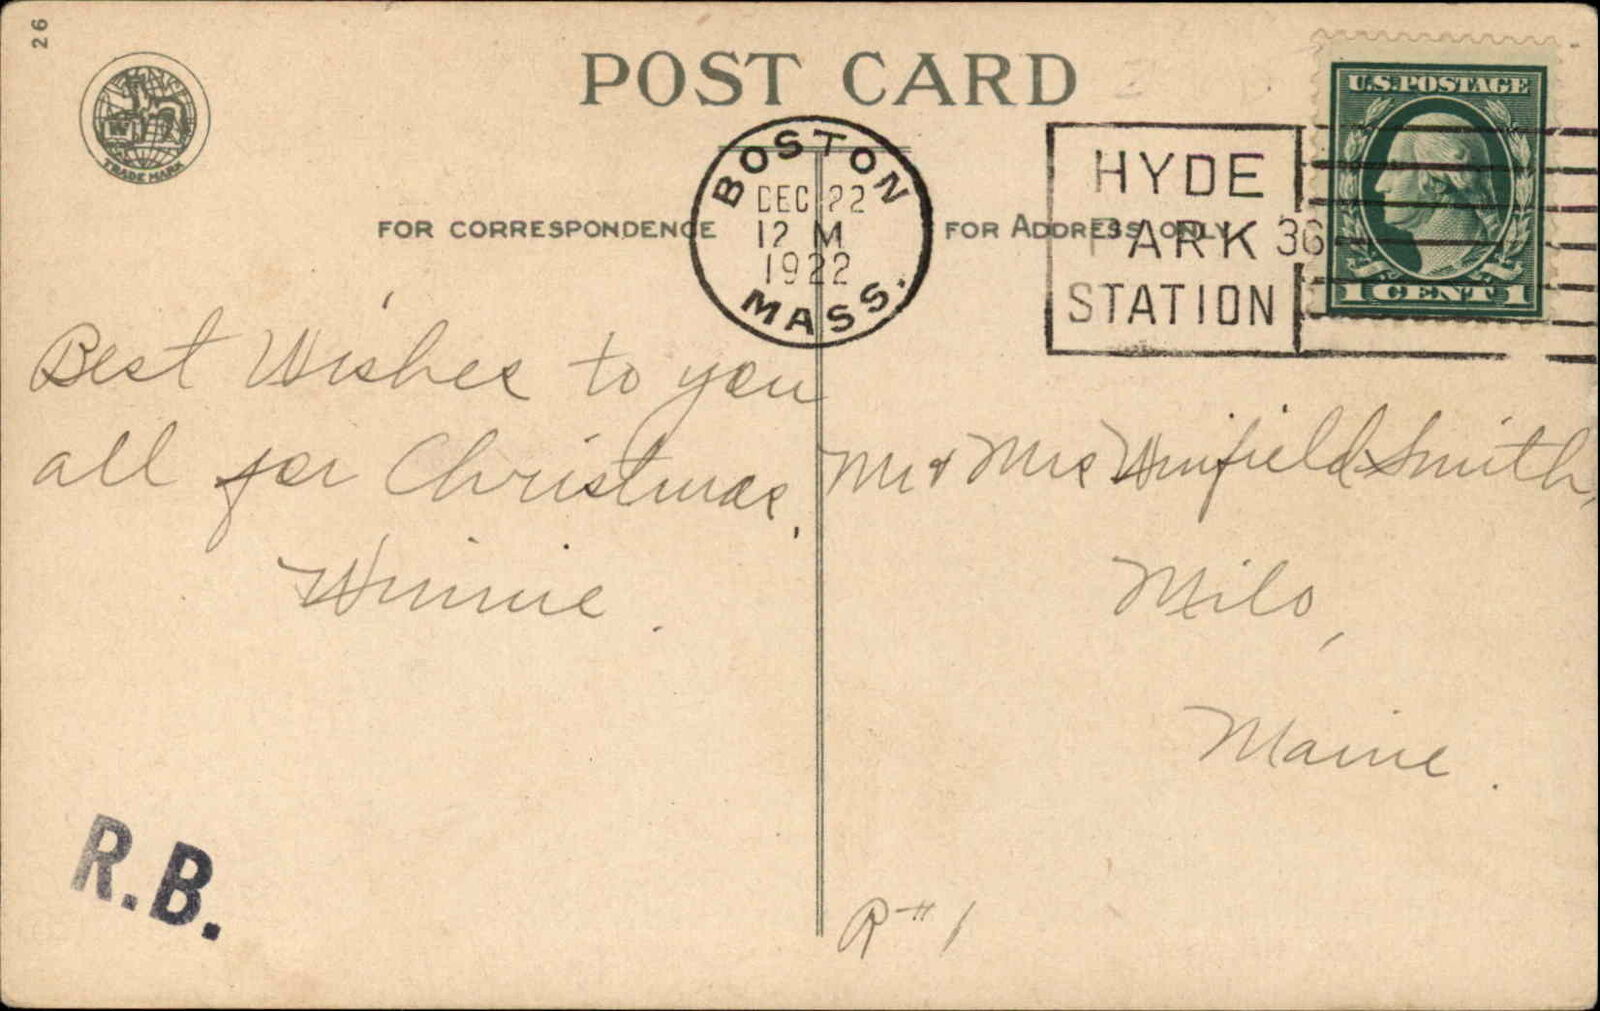 26
POST CARD
TRADE MARK
BOSTON
DEC 22
12 M
1922
MASS.
HYDE
PARK 36
STATION
U.S. POSTAGE
1 CENT 1
FOR CORRESPONDENCE
FOR ADDRESS ONLY
Best Wishes to you
all for Christmas,
Winnie.
Mr & Mrs Winfield Smith,
Milo,
Maine.
R.B.
R # 1